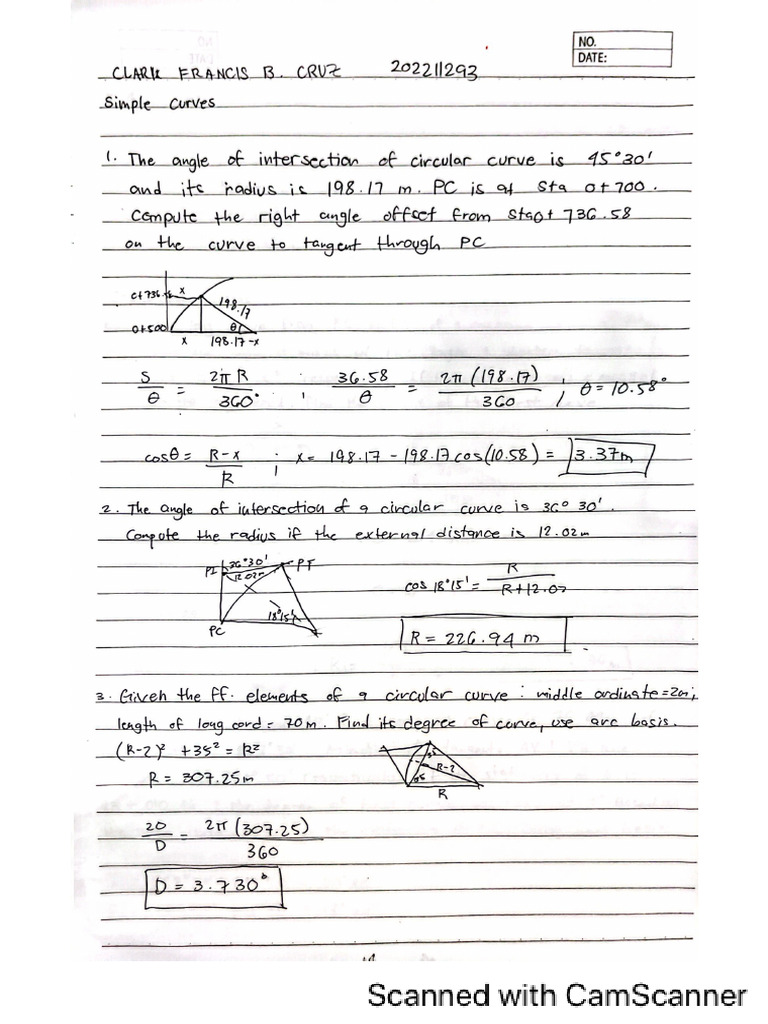 NO.
DATE:
CLARK FRANCIS B. CRUZ 202211293
Simple Curves
1. The angle of intersection of circular curve is 45°30'
and its radius is 198.17 m. PC is at Sta 0+700.
Compute the right angle offset from Sta0+ 736.58
on the curve to tangent through PC
0+736 x 198.17
0+500 θ
x 198.17-x
S/θ = 2πR/360° ; 36.58/θ = 2π(198.17)/360 ; θ=10.58°
cosθ = R-x/R ; x= 198.17 - 198.17cos(10.58) = 3.37m
2. The angle of intersection of a circular curve is 36° 30'.
Compute the radius if the external distance is 12.02m
PI 36°30' PT
12.02m
18°15'
PC
cos 18°15' = R/R+12.02
R = 226.94 m
3. Given the ff. elements of a circular curve : middle ordinate=2m;
length of long cord = 70m. Find its degree of curve, use arc basis.
(R-2)² +35² = R²
R = 307.25m
35
R-2
35
R
20/D = 2π(307.25)/360
D = 3.730°
Scanned with CamScanner